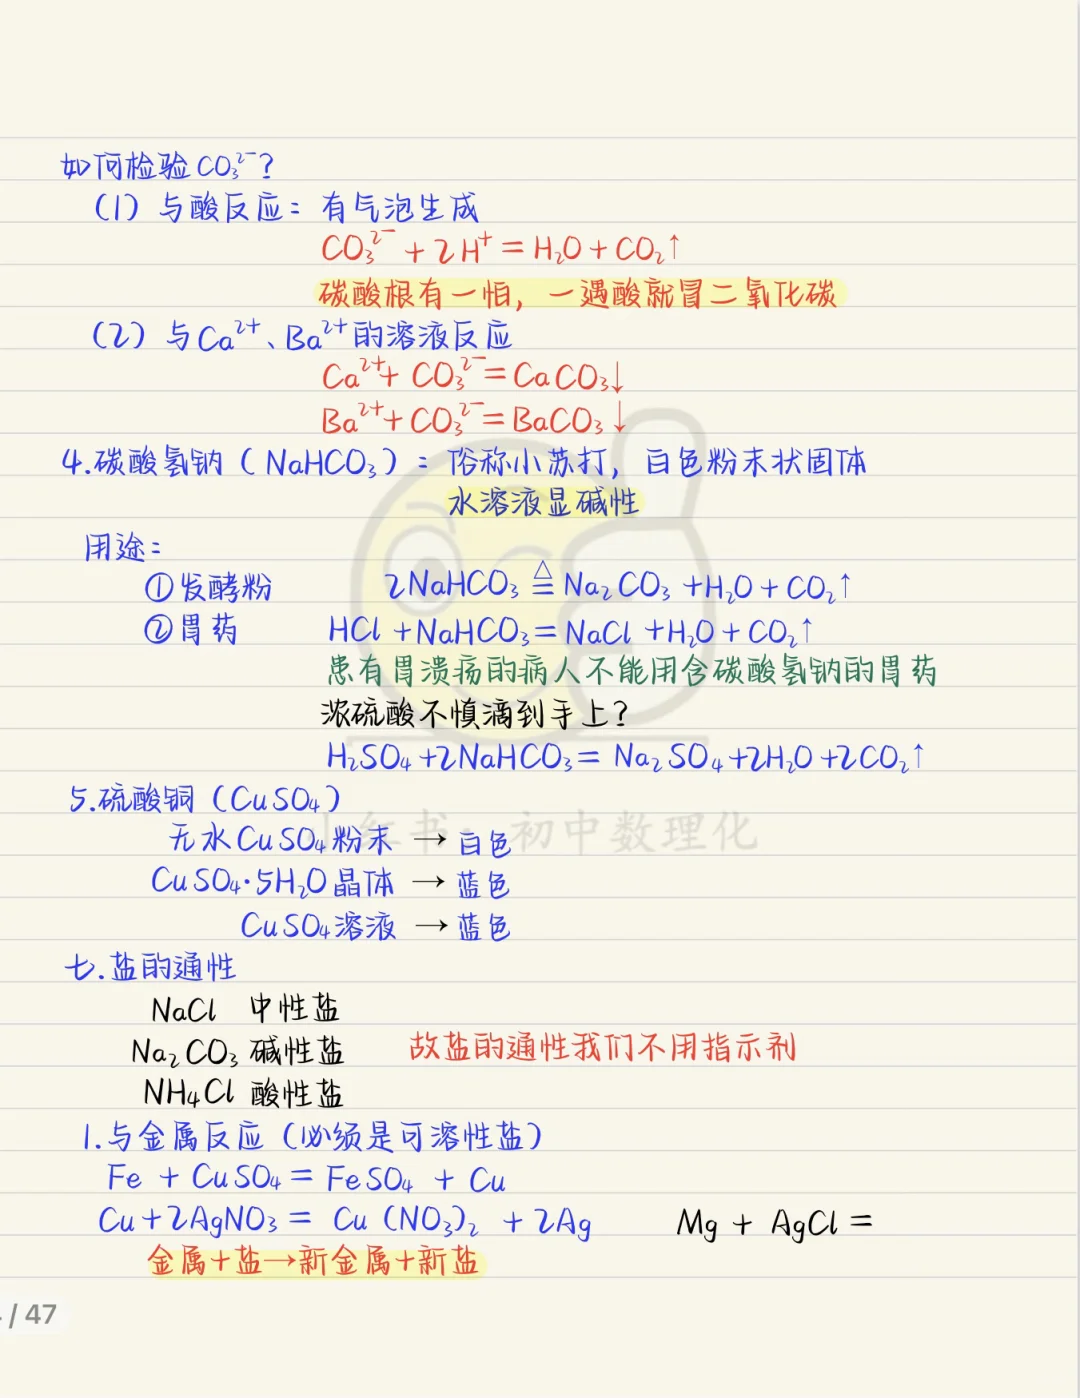 如何检验CO₃²⁻?
(1) 与酸反应: 有气泡生成
CO₃²⁻+2H⁺=H₂O+CO₂↑
碳酸根有一怕, 一遇酸就冒二氧化碳
(2) 与Ca²⁺、Ba²⁺的溶液反应
Ca²⁺+CO₃²⁻=CaCO₃↓
Ba²⁺+CO₃²⁻=BaCO₃↓
4.碳酸氢钠(NaHCO₃): 俗称小苏打, 白色粉末状固体
水溶液显碱性
用途:
①发酵粉 2NaHCO₃≜Na₂CO₃+H₂O+CO₂↑
②胃药 HCl+NaHCO₃=NaCl+H₂O+CO₂↑
患有胃溃疡的病人不能用含碳酸氢钠的胃药
浓硫酸不慎滴到手上?
H₂SO₄+2NaHCO₃=Na₂SO₄+2H₂O+2CO₂↑
5.硫酸铜(CuSO₄)
小红书: 初中数理化
无水CuSO₄粉末→白色
CuSO₄·5H₂O晶体→蓝色
CuSO₄溶液→蓝色
七.盐的通性
NaCl 中性盐
Na₂CO₃ 碱性盐 故盐的通性我们不用指示剂
NH₄Cl 酸性盐
1.与金属反应(必须是可溶性盐)
Fe + CuSO₄ = FeSO₄ + Cu
Cu+2AgNO₃ = Cu(NO₃)₂ + 2Ag Mg + AgCl =
金属+盐→新金属+新盐
/ 47